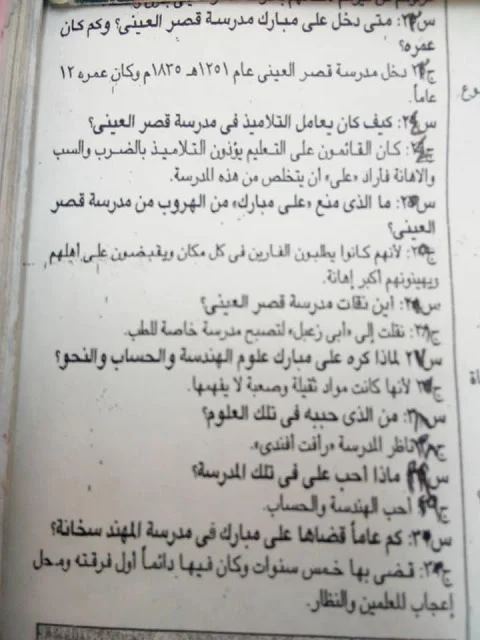 س٢٣: متى دخل على مبارك مدرسة قصر العينى؟ وكم كان
عمره؟
ج٢٣: دخل مدرسة قصر العينى عام ١٢٥١هـ ١٨٣٥م وكان عمره ١٢
عاماً.
س٢٤: كيف كان يعامل التلاميذ فى مدرسة قصر العينى؟
ج٢٤: كان القائمون على التعليم يؤذون التلاميذ بالضرب والسب
والاهانة فاراد «على» أن يتخلص من هذه المدرسة.
س٢٥: ما الذى منع «على مبارك» من الهروب من مدرسة قصر
العينى؟
ج٢٥: لأنهم كانوا يطلبون الفارين فى كل مكان ويقبضون على أهلهم
ويهينونهم أكبر إهانة.
س٢٦: اين نقلت مدرسة قصر العينى؟
ج٢٦: نقلت إلى «أبى زعبل» لتصبح مدرسة خاصة للطب.
س٢٧: لماذا كره على مبارك علوم الهندسة والحساب والنحو؟
ج٢٧: لأنها كانت مواد ثقيلة وصعبة لا يفهمها.
س٢٨: من الذى حببه فى تلك العلوم؟
ج٢٨: ناظر المدرسة «رأفت أفندى».
س٢٩: ماذا أحب على فى تلك المدرسة؟
ج٢٩: أحب الهندسة والحساب.
س٣٠: كم عاماً قضاها على مبارك فى مدرسة المهند سخانة؟
ج٣٠: قضى بها خمس سنوات وكان فيها دائماً أول فرقته ومحل
إعجاب للمعلمين والنظار.
وع
اة